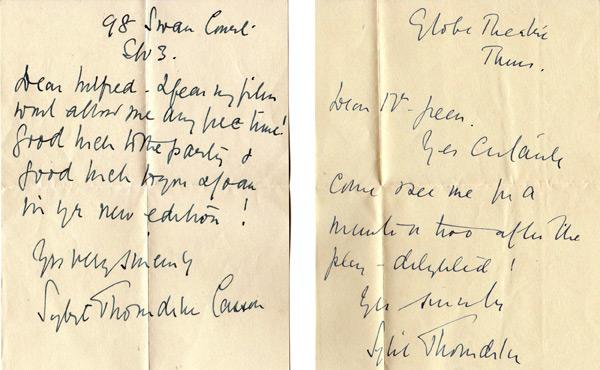 98 Swan Court
SW3.
Dear Milfred - I fear my film
wont allow me any free time!
Good luck to the party &
good luck to you & Joan
in yr new edition!
Yrs very sincerely
Sybil Thorndike Casson
Globe Theatre
Thurs.
Dear Mr Green.
Yes Certainly
Come & see me for a
minute or two after the
play - delighted!
Yrs sincerely
Sybil Thorndike